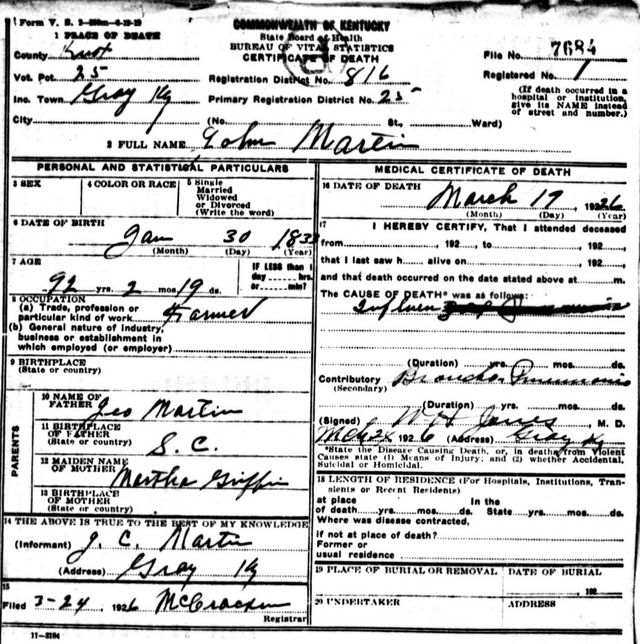 Form V. S.
COMMONWEALTH OF KENTUCKY
State Board of Health
BUREAU OF VITAL STATISTICS
CERTIFICATE OF DEATH
1 PLACE OF DEATH
County Knox
Vot. Pct. 25
Inc. Town Gray Ky
City
Registration District No. 816
Primary Registration District No. 25
(No. St., Ward)
File No. 7684
Registered No. 1
(If death occurred in a hospital or institution, give its NAME instead of street and number.)
2 FULL NAME John Martin
PERSONAL AND STATISTICAL PARTICULARS
3 SEX
4 COLOR OR RACE
5 Single
Married
Widowed
or Divorced
(Write the word)
6 DATE OF BIRTH
Jan 30
(Month) (Day) (Year)
7 AGE
92 yrs. 2 mos. 19 ds.
IF LESS than 1
day hrs.
or min?
8 OCCUPATION
(a) Trade, profession or
particular kind of work Farmer
(b) General nature of industry,
business or establishment in
which employed (or employer)
9 BIRTHPLACE
(State or country)
PARENTS
10 NAME OF
FATHER Geo Martin
11 BIRTHPLACE
OF FATHER
(State or country) S. C.
12 MAIDEN NAME
OF MOTHER Martha Griffin
13 BIRTHPLACE
OF MOTHER
(State or country)
14 THE ABOVE IS TRUE TO THE BEST OF MY KNOWLEDGE
(Informant) J. C. Martin
(Address) Gray Ky
15
Filed 3-24, 1926 McCracken
Registrar
11-3184
MEDICAL CERTIFICATE OF DEATH
16 DATE OF DEATH
March 19, 1926
(Month) (Day) (Year)
17 I HEREBY CERTIFY, That I attended deceased
from , 192 , to , 192 ,
that I last saw h alive on , 192 ,
and that death occurred on the date stated above at m.
The CAUSE OF DEATH* was as follows:
(Duration) yrs. mos. ds.
Contributory Broncho Pneumonia
(Secondary)
(Duration) yrs. mos. ds.
(Signed) W H Jones, M. D.
1926 (Address) Gray Ky
*State the Disease Causing Death, or, in deaths from Violent
Causes state (1) Means of Injury; and (2) whether Accidental,
Suicidal or Homicidal.
18 LENGTH OF RESIDENCE (For Hospitals, Institutions, Transients or Recent Residents)
at place In the
of death yrs. mos. ds. State yrs. mos. ds.
Where was disease contracted,
if not at place of death?
Former or
usual residence
19 PLACE OF BURIAL OR REMOVAL
DATE OF BURIAL
, 192
20 UNDERTAKER
ADDRESS